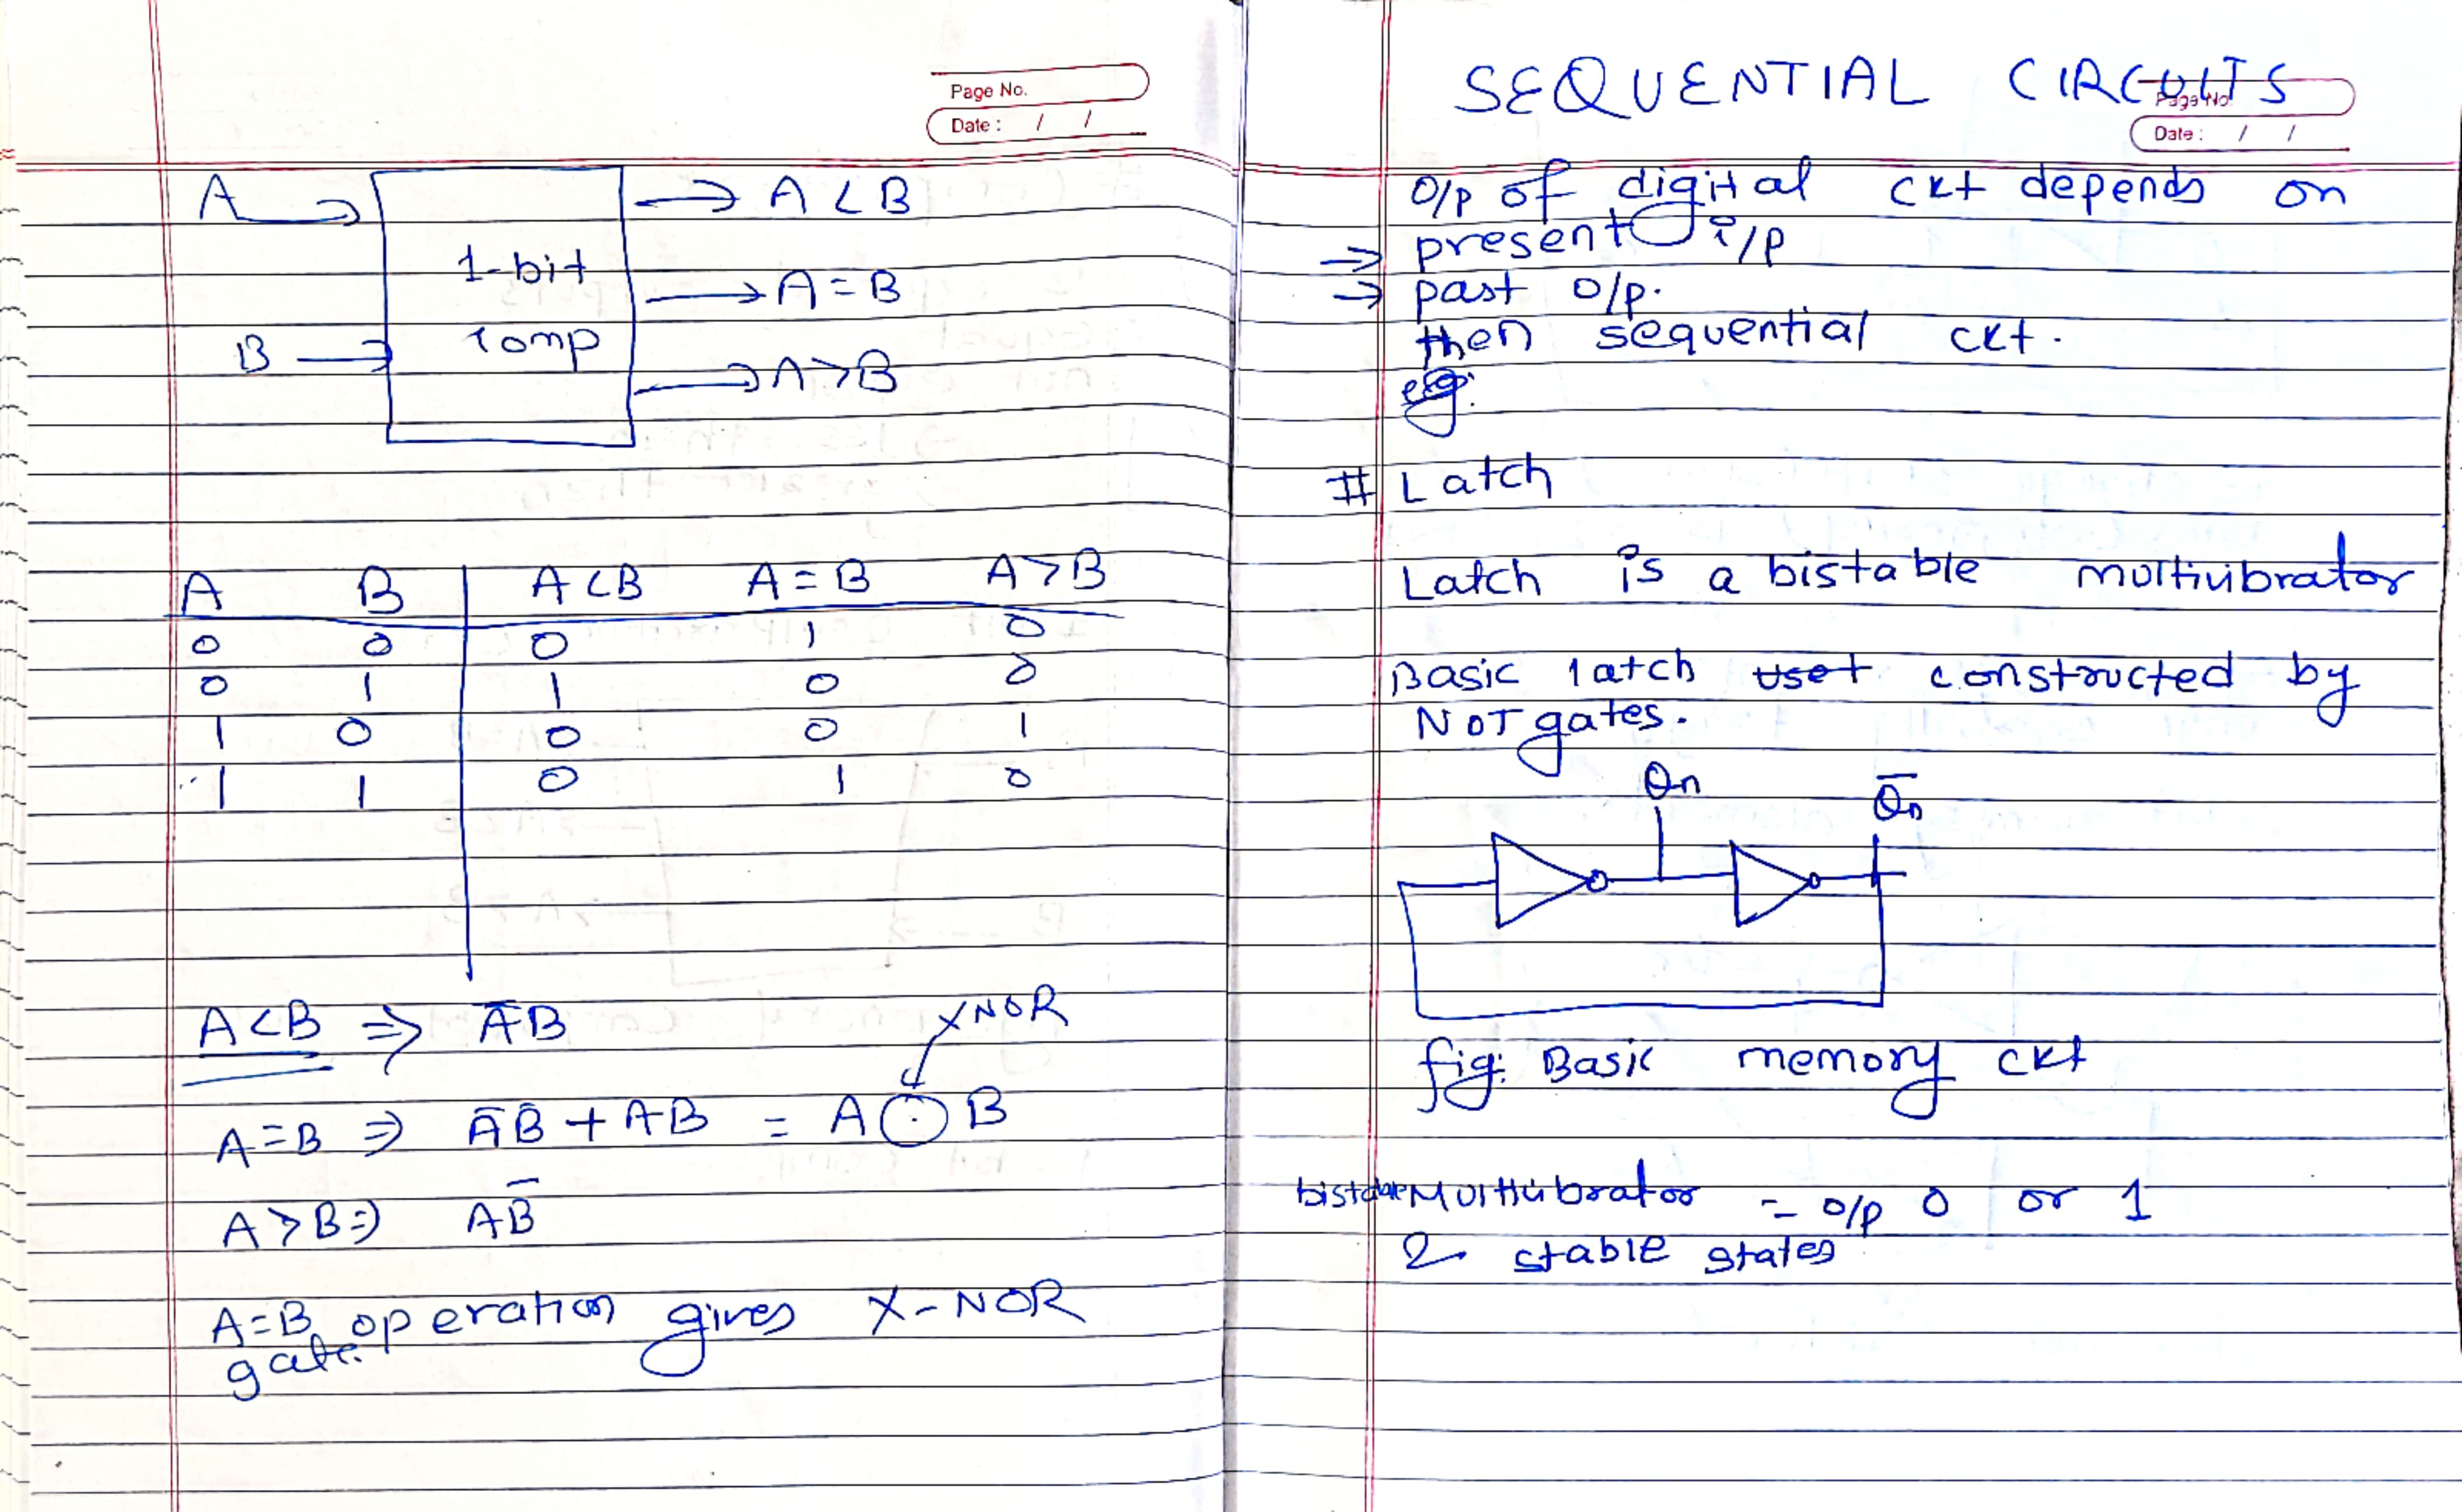 Page No.
Date : / /
A → A < B
1-bit
→ A = B
B → comp
→ A > B
A B A < B A = B A > B
0 0 0 1 0
0 1 1 0 0
1 0 0 0 1
1 1 0 1 0
A < B ⇒ A̅B
XNOR
A = B ⇒ A̅B̅ + AB = A ⊙ B
A > B ⇒ AB̅
A=B operation gives X-NOR
gate.
SEQUENTIAL CIRCUITS
Page No.
Date : / /
O/p of digital ckt depends on
⇒ present i/p
→ past o/p.
then sequential ckt.
eg:
# Latch
Latch is a bistable multivibrator
Basic latch constructed by
NOT gates.
Qn Q̅n
fig: Basic memory ckt
bistable Multivibrator = o/p 0 or 1
2 stable states